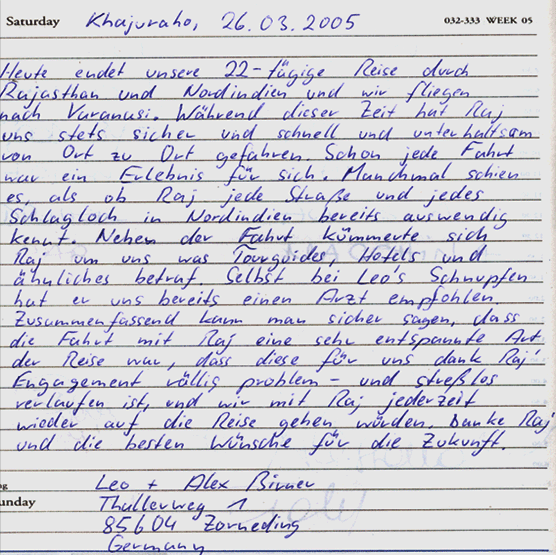 Saturday Khajuraho, 26.03.2005 032-333 WEEK 05
Heute endet unsere 22-tägige Reise durch
Rajasthan und Nordindien und wir fliegen
nach Varanasi. Während dieser Zeit hat Raj
uns stets sicher und schnell und unterhaltsam
von Ort zu Ort gefahren. Schon jede Fahrt
war ein Erlebnis für sich. Manchmal schien
es, als ob Raj jede Straße und jedes
Schlagloch in Nordindien bereits auswendig
kennt. Neben der Fahrt kümmerte sich
Raj um uns was Tourguides Hotels und
ähnliches betraf Selbst bei Leo's Schnupfen
hat er uns bereits einen Arzt empfohlen
Zusammenfassend kann man sicher sagen, dass
die Fahrt mit Raj eine sehr entspannte Art
der Reise war, dass diese für uns dank Raj'
Engagement völlig problem- und streßlos
verlaufen ist, und wir mit Raj jederzeit
wieder auf die Reise gehen würden. Danke Raj
und die besten Wünsche für die Zukunft.
Leo + Alex Birner
unday Thallerweg 1
85604 Zorneding
Germany